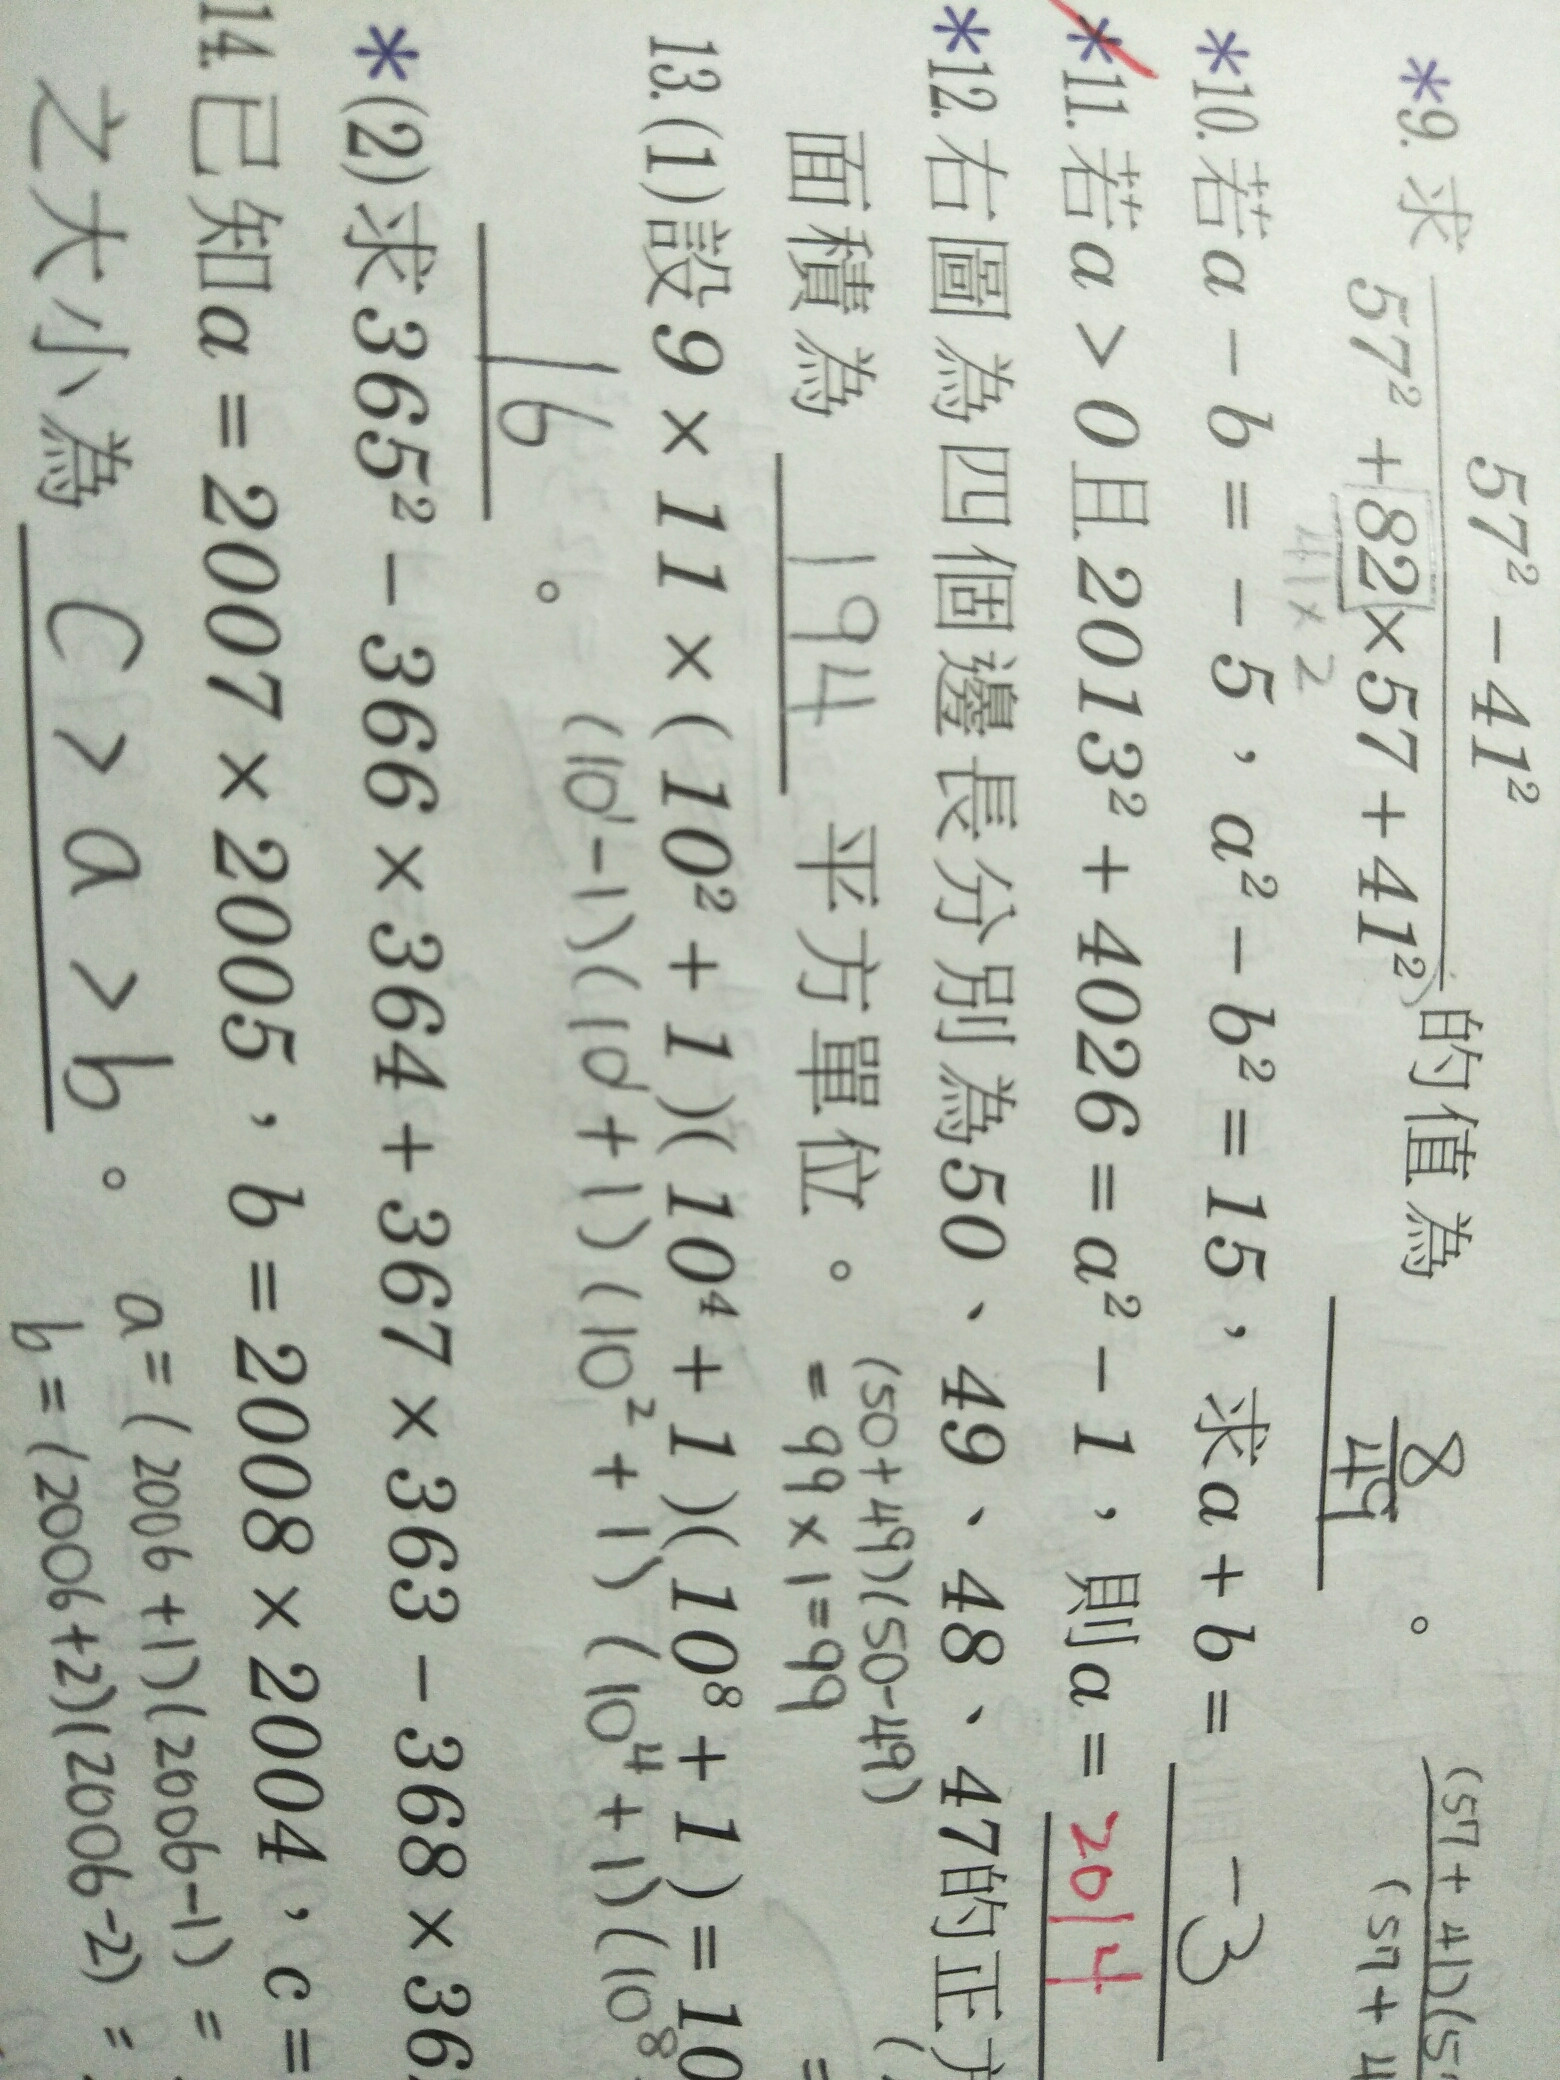 *9. 求 57² - 41² / 57² + 82 × 57 + 41² 的值為 8/49 。
41 × 2
(57 + 41)(5
(57 + 4
*10. 若 a - b = - 5，a² - b² = 15，求 a + b = -3
*11. 若 a > 0 且 2013² + 4026 = a² - 1，則 a = 2014
*12. 右圖為四個邊長分別為 50、49、48、47 的正方
面積為 194 平方單位。
(50+49)(50-49)
= 99 × 1 = 99
13. (1) 設 9 × 11 × ( 10² + 1 )( 10⁴ + 1 )( 10⁸ + 1 ) = 10
(10¹-1)(10¹+1)(10²+1)(10⁴+1)(10⁸
16 。
*(2) 求 365² - 366 × 364 + 367 × 363 - 368 × 36
14. 已知 a = 2007 × 2005，b = 2008 × 2004，c =
之大小為 c > a > b 。
a = (2006+1)(2006-1) =
b = (2006+2)(2006-2) =